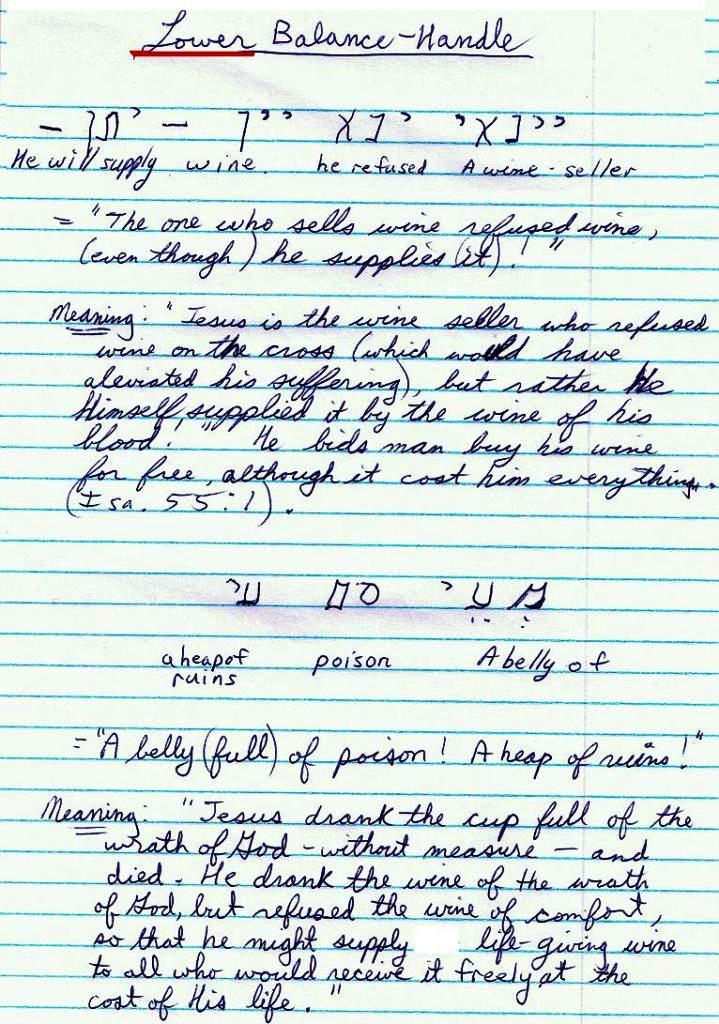 Lower Balance-Handle
יינאי ינא יין – יתן –
He will supply wine. he refused A wine-seller
= "The one who sells wine refused wine,
(even though) he supplies (it)!"
Meaning: "Jesus is the wine seller who refused
wine on the cross (which would have
aleviated his suffering), but rather He
Himself supplied it by the wine of his
blood." He bids man buy his wine
for free, although it cost him everything".
(Isa. 55:1).
מעי סם עי
a heap of poison A belly of
ruins
= "A belly (full) of poison! A heap of ruins!"
Meaning: "Jesus drank the cup full of the
wrath of God – without measure – and
died. He drank the wine of the wrath
of God, but refused the wine of comfort,
so that he might supply life-giving wine
to all who would receive it freely at the
cost of His life."